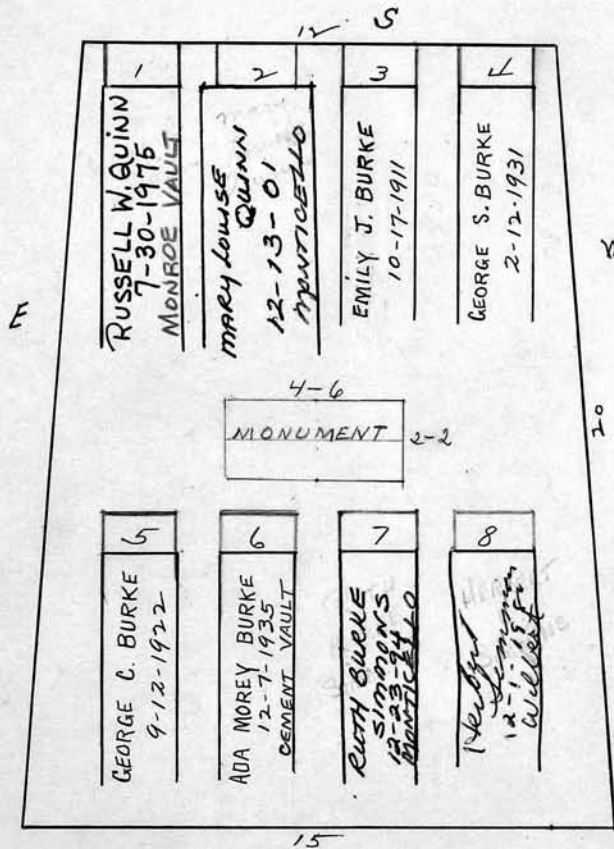 12 S
1
RUSSELL W. QUINN
7-30-1975
MONROE VAULT
2
MARY LOUISE
QUINN
12-13-01
MONTICELLO
3
EMILY J. BURKE
10-17-1911
4
GEORGE S. BURKE
2-12-1931
E
20
4-6
MONUMENT
2-2
5
GEORGE C. BURKE
9-12-1922
6
ADA MOREY BURKE
12-7-1935
CEMENT VAULT
7
RUTH BURKE
SIMMONS
12-23-94
MONTICELLO
8
Herbert
Simmons
Wilbert
15